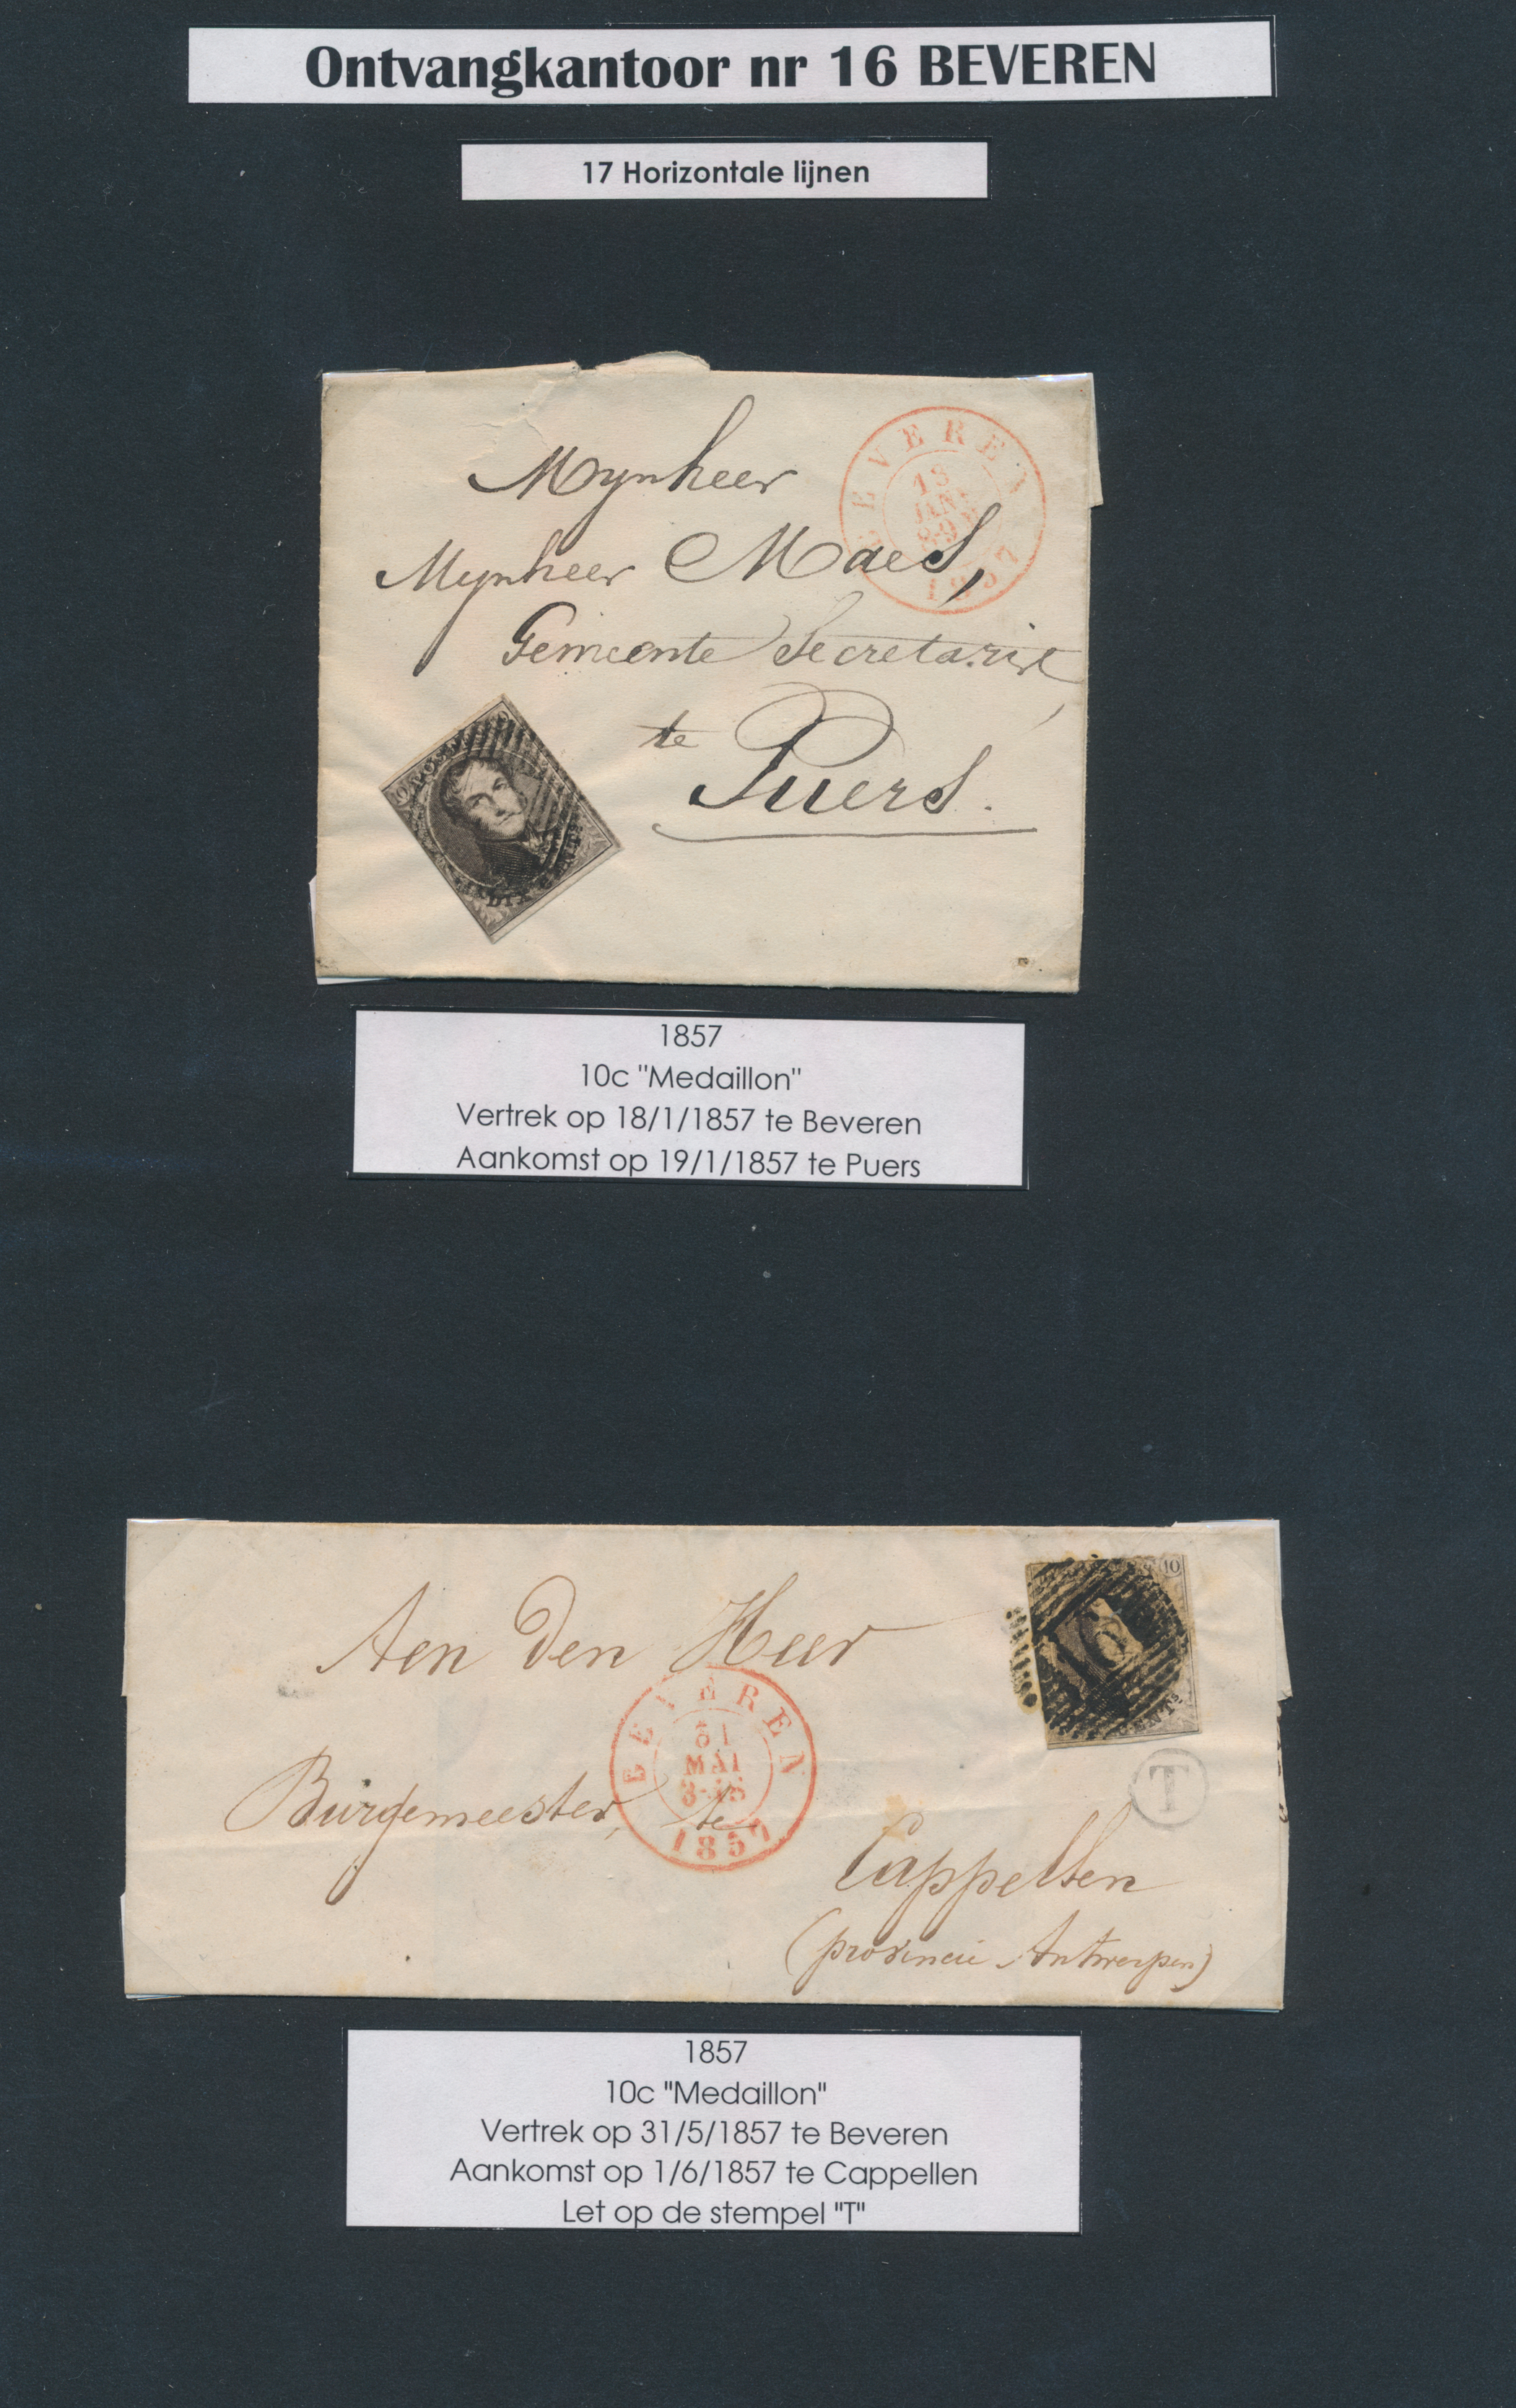 Ontvangkantoor nr 16 BEVEREN
17 Horizontale lijnen
BEVEREN
18
JANV
1857
Mynheer
Mynheer Maes,
Gemeente Secretaris
te
Puers.
10 POSTES
DIX
1857
10c "Medaillon"
Vertrek op 18/1/1857 te Beveren
Aankomst op 19/1/1857 te Puers
10
16
CENTS
T
Aen Den Heer
BEVEREN
31
MAI
1857
Burgemeester, te
Cappellen
(provincie Antwerpen)
1857
10c "Medaillon"
Vertrek op 31/5/1857 te Beveren
Aankomst op 1/6/1857 te Cappellen
Let op de stempel "T"